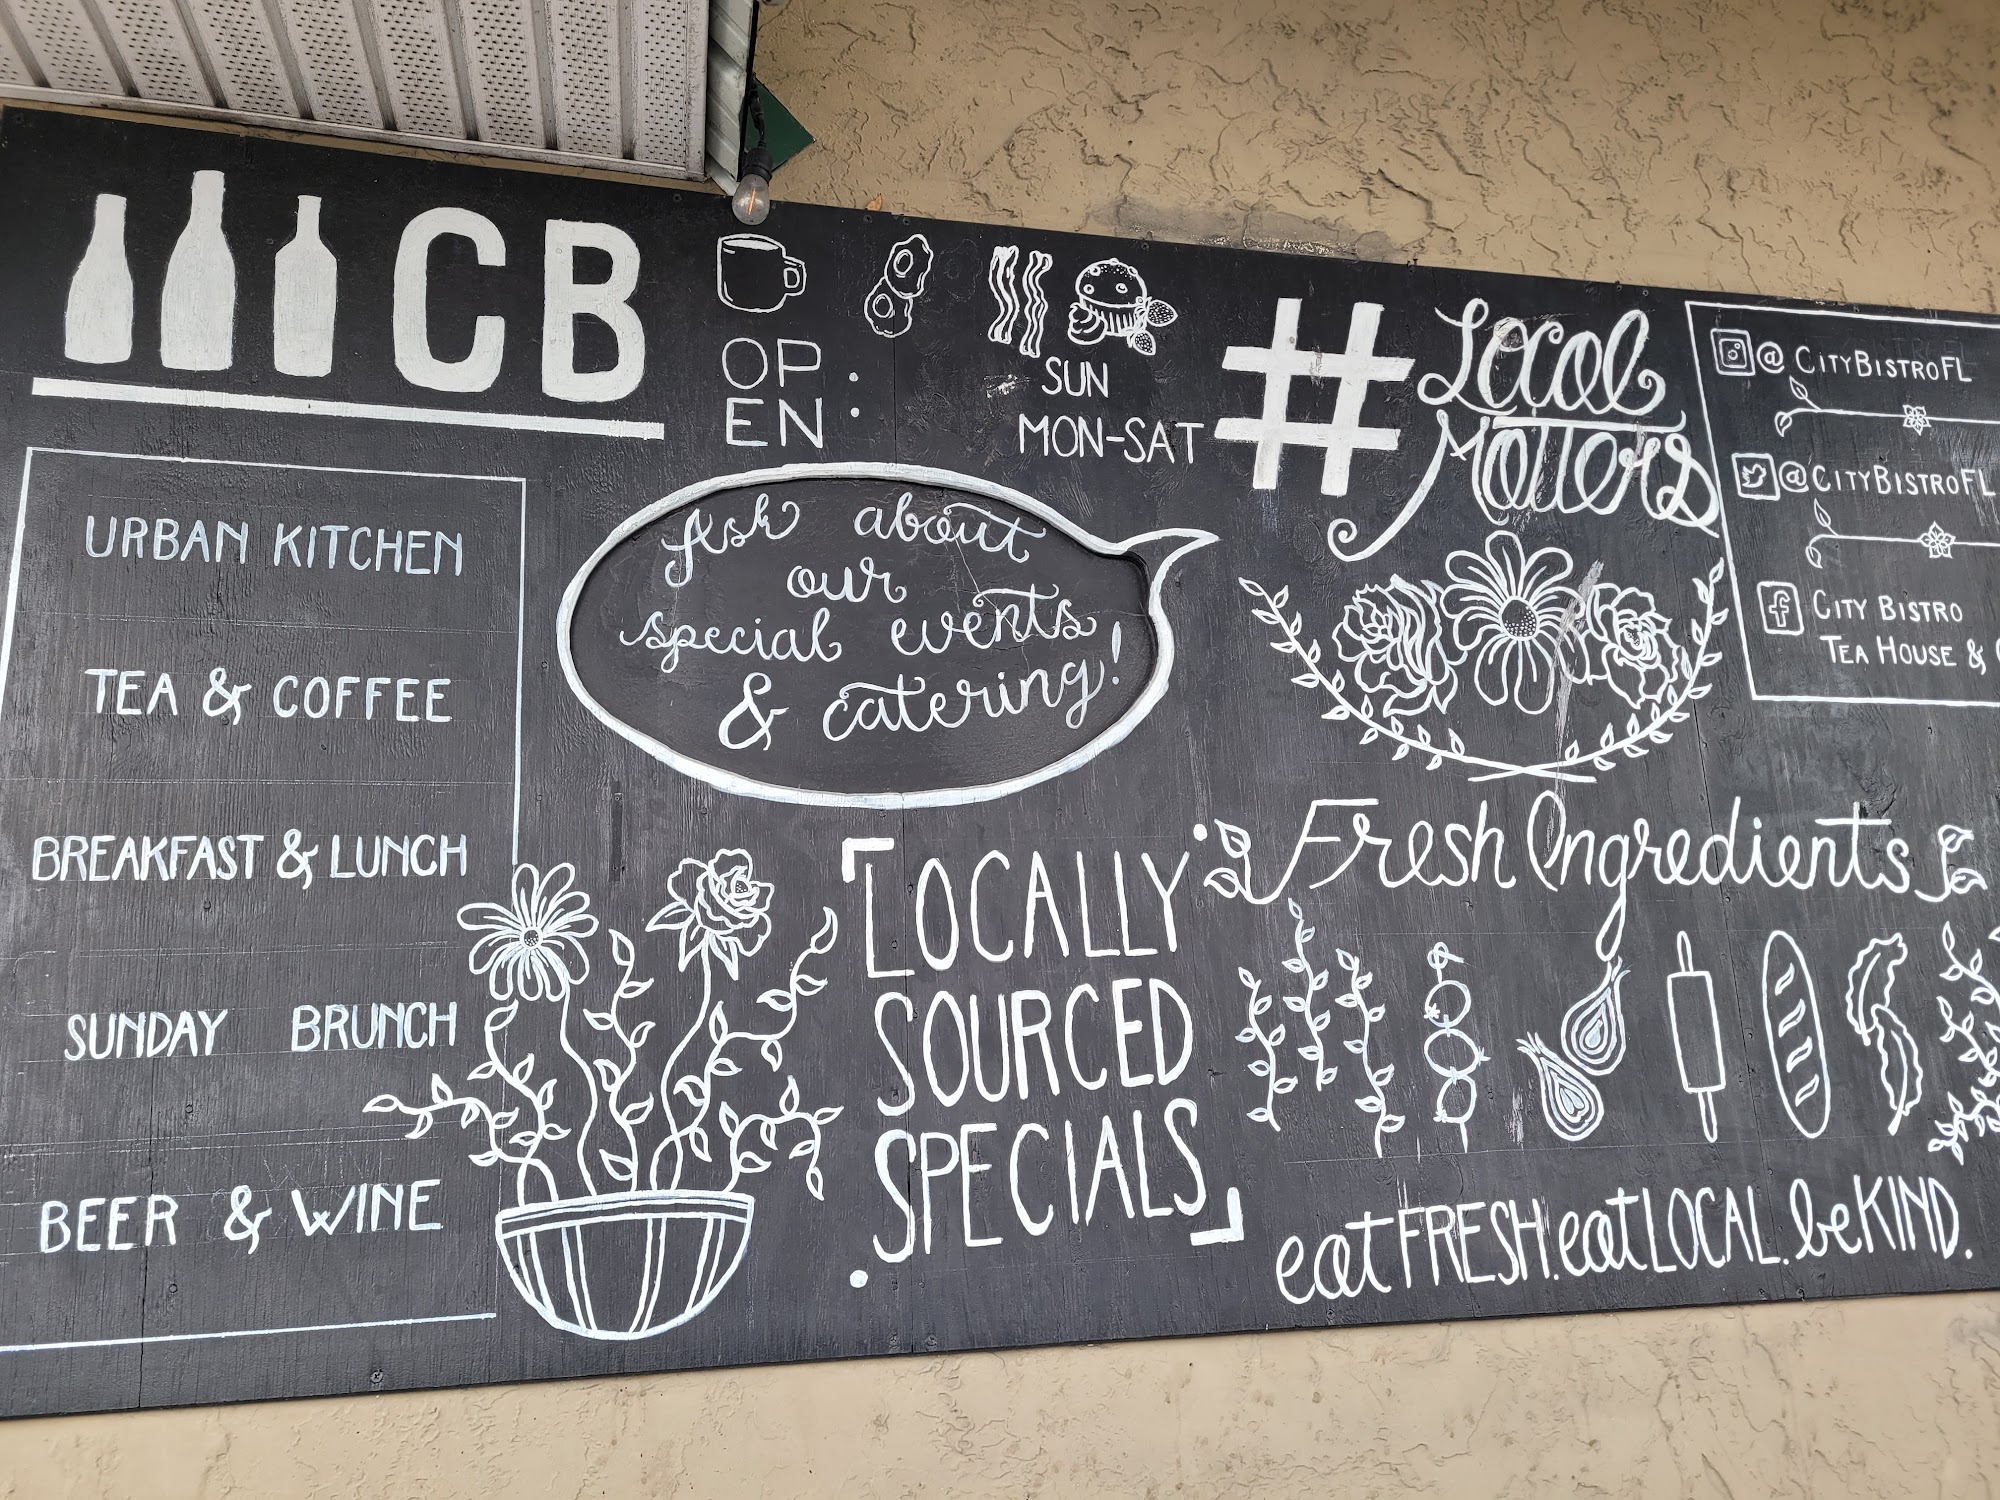 CB
OP
EN :
SUN
MON-SAT
#Local
Matters
@CITYBISTROFL
@CITYBISTROFL
CITY BISTRO
TEA HOUSE &
URBAN KITCHEN
TEA & COFFEE
BREAKFAST & LUNCH
SUNDAY BRUNCH
BEER & WINE
Ask about
our
special events
& catering!
LOCALLY
SOURCED
SPECIALS
Fresh Ingredients
eat FRESH. eat LOCAL. be KIND.